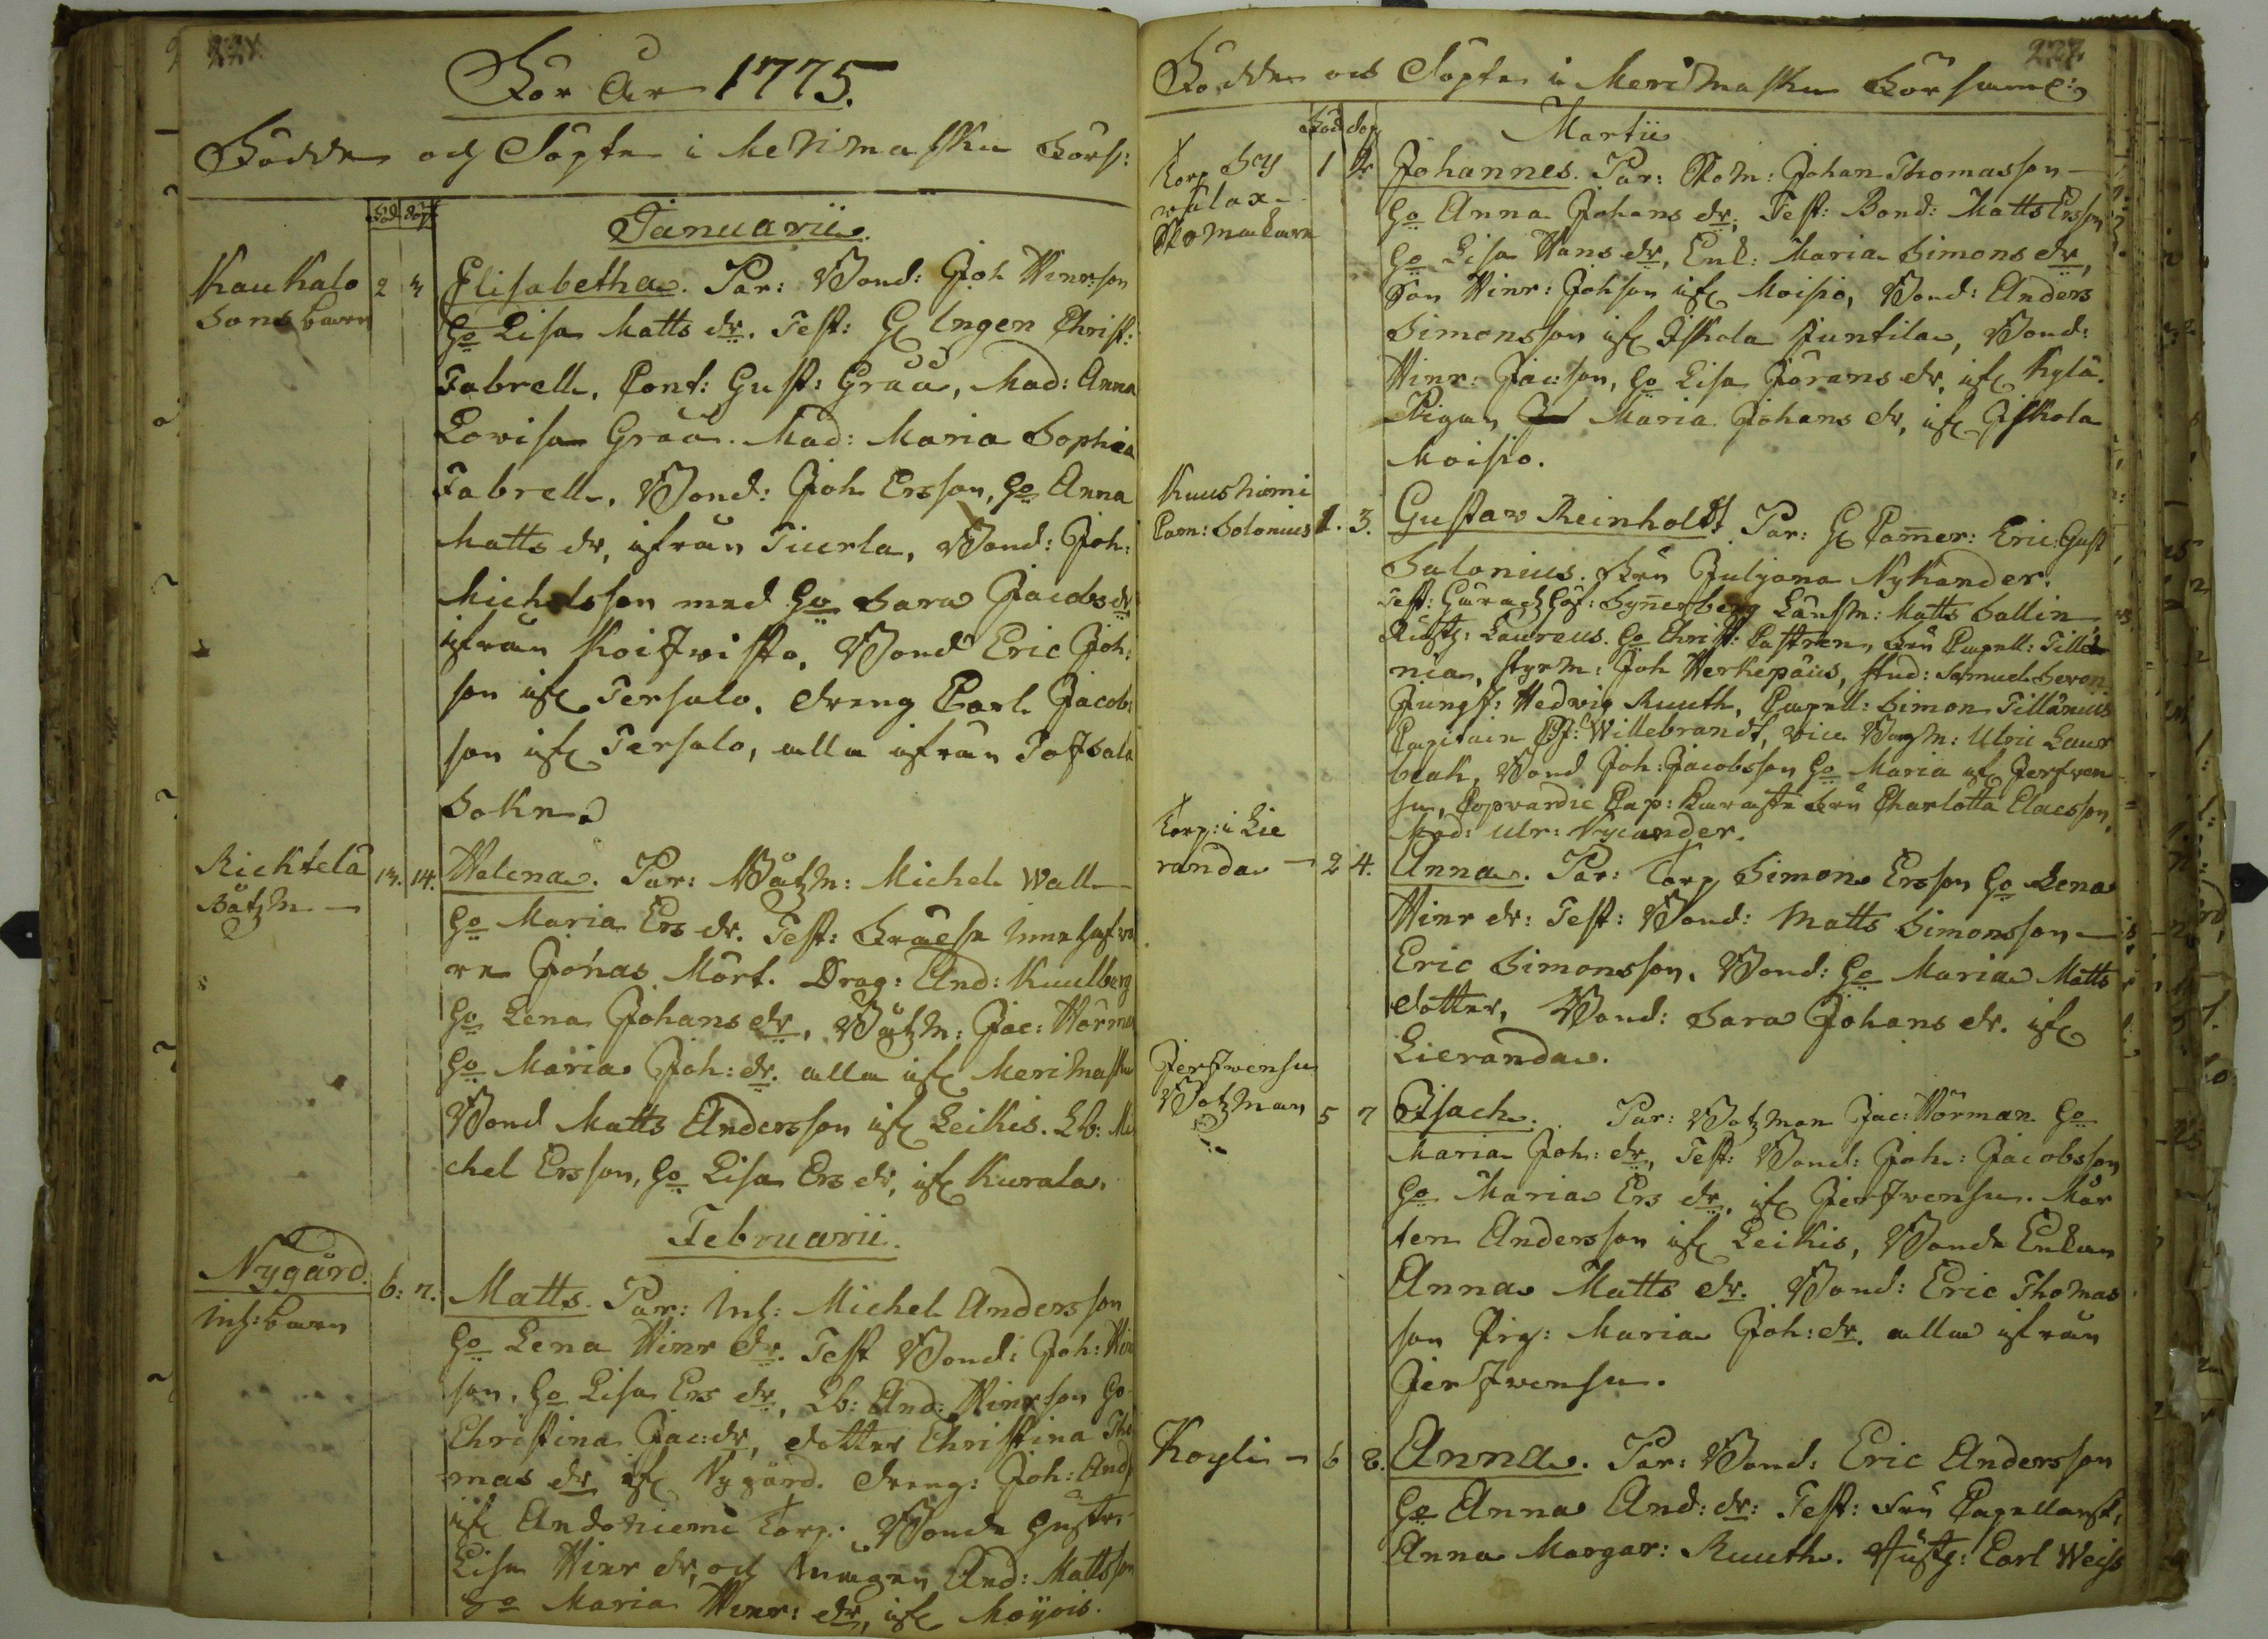 För År 1775.
Födde och Döpte i Merimasku Förs:
Född döpt
Januarii
Kaukalo
Sonsbarn
2 3 Elisabetha. Par: Bond: Joh Henr:son
Ho Lisa Matts dr. Test: H Ingen Christ:
Fabrell. Cont: Gust: Gråå, Mad: Anna
Lovisa Gråå. Mad: Maria Sophia
Fabrell. Bond: Joh Ersson, Ho Anna
Matts dr, ifrån Tiurla, Bond: Joh:
Michelsson med Ho Sara Jacobs dr
ifrån Koifvisto. Bond Eric Joh:
son if Tersalo. dreng Carl Jacob:
son if Tersalo, alla ifrån Tofsala
Sokn.
Richtela
Båtzm
13. 14. Helena. Par: Båtzm: Michel Wall
Ho Maria Ers dr. Test: Fraelse Innehafva
re Jonas Mört. Drag: And: Kuulberg
Ho Lena Johans dr, Båtzm: Jac: Hörman
Ho Maria Joh: dr. alla if Merimasku
Bond Matts Andersson if Leikis. Lb: Mi
chel Ersson, Ho Lisa Ers dr, if Kurala.
Februarii.
Nygård.
Inh: barn
6: 7. Matts. Par: Inh: Michel Andersson
Ho Lena Hinr dr. Test Bond: Joh: Hin
son, Ho Lisa Ers dr, Lb: And: Hinrson Ho
Christina Jac: dr, dotter Christina Tho
mas dr if Nygård. dreng: Joh: And
if Andoniemi Torp. Bonde hustr.
Lisa Hinr dr, och mågen And: Mattsson
Ho Maria Henr: dr, if Moijois.
Födde och Döpte i Merimasku Församl:
Född dop
Martii
Torp
1 Johannes. Par: Johan Thomasson
Ho Anna Johans dr, Test: Bond: Matts Ersson
Ho Lisa Hans dr, Enk: Maria Simons dr,
Son Hinr: Johson if Moisio, Bond: Anders
Simonsson if Iskola Juntila, Bond:
Hinr: Jac:son, Ho Lisa Görans dr, if Kylä.
Pigan Maria Johans dr, if Iskola
Moisio.
Kuusniemi
Cam: Solonius
1. 3. Gustav Reinholdt. Par: H Camer: Eric Gust
Salonius. Fru Juliana Nykander.
Test: Synnerberg Länsm: Matts Sallin
Rustg: Laureus. Ho Christ: Castren, Fru Capell: Tillæ
nia, Styrm: Joh Herkepäus, Stud: Samuel Seron
Jungf: Hedvig Ruuth, Capell: Simon Tillänius
Capitain Willebrandt, vice Ulric Laur
beck, Bond Joh: Jacobsson Ho Maria if Jerfven
su, Copvardie Cap: Fru Charlotta Claesson,
Mad: Ulr: Nycander.
Torp: i Lie
randa
2 4. Anna. Par: Torp Simon Ersson Ho Lena
Hinr dr: Test: Bond: Matts Simonsson
Eric Simonsson. Bond: Ho Maria Matts
dotter, Bond: Sara Johans dr. if
Lieranda.
Jerfvensu
Botzman
5 7 Isach. Par: Botzman Jac: Hörman Ho
Maria Joh: dr, Test: Bond: Joh: Jacobsson
Ho Maria Ers dr, if Jerfvensu. Mår
ten Andersson if Leikis, Bonde Enkan
Anna Matts dr. Bond: Eric Thomas
son Pig: Maria Joh: dr. alla ifrån
Jerfvensu.
Köyli
6 8. Anna. Par: Bond: Eric Andersson
Ho Anna And: dr: Test: Fru Capellansk,
Anna Margar: Ruuth. Rustg: Carl Weiss